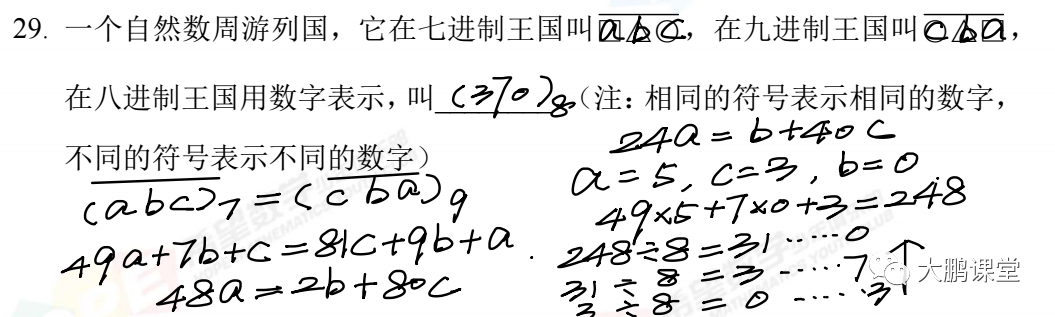 29. 一个自然数周游列国，它在七进制王国叫abc，在九进制王国叫cba，
在八进制王国用数字表示，叫 (370)₈（注：相同的符号表示相同的数字，
不同的符号表示不同的数字）
(abc)₇=(cba)₉
49a+7b+c=81c+9b+a
48a=2b+80c
24a=b+40c
a=5, c=3, b=0.
49×5+7×0+3=248
248÷8=31……0
31÷8=3……7
3÷8=0……3
大鹏课堂